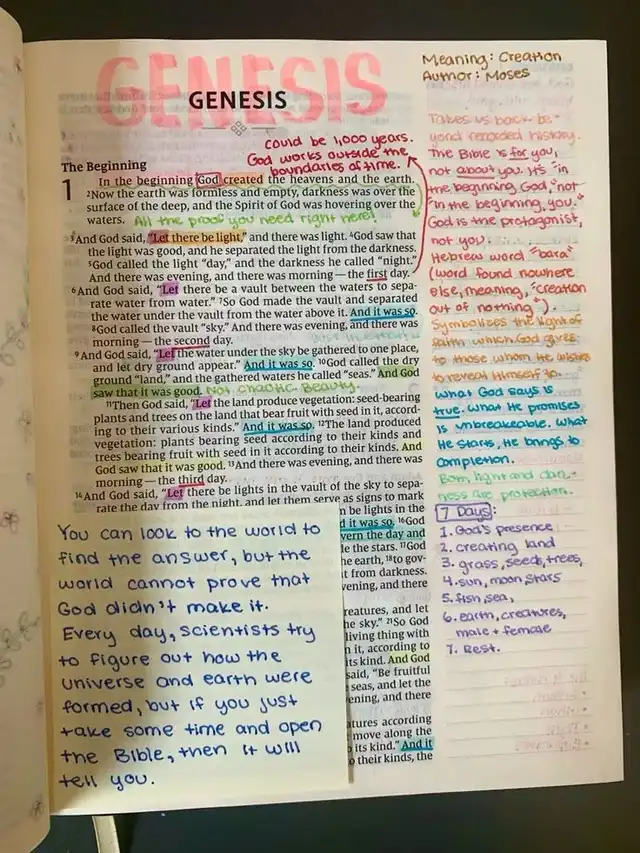 GENESIS
GENESIS
Meaning: Creation
Author: Moses
could be 1,000 years.
God works outside the
boundaries of time.
The Beginning
1 In the beginning God created the heavens and the earth.
2Now the earth was formless and empty, darkness was over the
surface of the deep, and the Spirit of God was hovering over the
waters. All the proof you need right here!
3And God said, "Let there be light," and there was light. 4God saw that
the light was good, and he separated the light from the darkness.
5God called the light "day," and the darkness he called "night."
And there was evening, and there was morning—the first day.
6And God said, "Let there be a vault between the waters to sepa-
rate water from water." 7So God made the vault and separated
the water under the vault from the water above it. And it was so.
8God called the vault "sky." And there was evening, and there was
morning—the second day.
9And God said, "Let the water under the sky be gathered to one place,
and let dry ground appear." And it was so. 10God called the dry
ground "land," and the gathered waters he called "seas." And God
saw that it was good. Not chaotic. Beauty.
11Then God said, "Let the land produce vegetation: seed-bearing
plants and trees on the land that bear fruit with seed in it, accord-
ing to their various kinds." And it was so. 12The land produced
vegetation: plants bearing seed according to their kinds and
trees bearing fruit with seed in it according to their kinds. And
God saw that it was good. 13And there was evening, and there was
morning—the third day.
14And God said, "Let there be lights in the vault of the sky to sepa-
rate the day from the night, and let them serve as signs to mark
n be lights in the
d it was so. 16God
vern the day and
le the stars. 17God
the earth, 18to gov-
t from darkness.
evening, and there
reatures, and let
he sky." 21So God
living thing with
n it, according to
its kind. And God
said, "Be fruitful
seas, and let the
ening, and there
atures according
move along the
o its kind." And it
o their kinds, the
You can look to the world to
find the answer, but the
world cannot prove that
God didn't make it.
Every day, scientists try
to figure out how the
universe and earth were
formed, but if you just
take some time and open
the Bible, then it will
tell you.
Takes us back be-
yond recorded history.
The Bible is for you,
not about you. It's "in
the beginning, God," not
"in the beginning, you."
God is the protagonist,
not you.
Hebrew word "bara"
(word found nowhere
else, meaning, "creation
out of nothing").
Symbolizes the light of
faith which God gives
to those whom He wishes
to reveal Himself to.
What God says is
true. What He promises
is unbreakable. What
He starts, He brings to
completion.
Both light and dark-
ness are protection.
7 Days:
1. God's presence
2. creating land
3. grass, seeds, trees,
4. sun, moon stars
5. fish, sea,
6. earth, creatures,
male + female
7. Rest.